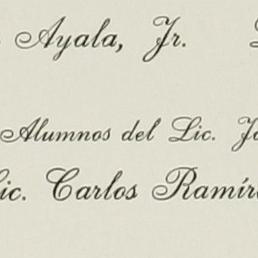 Ayala, Jr.
Alumnos del Lic.
Lic. Carlos Ramír